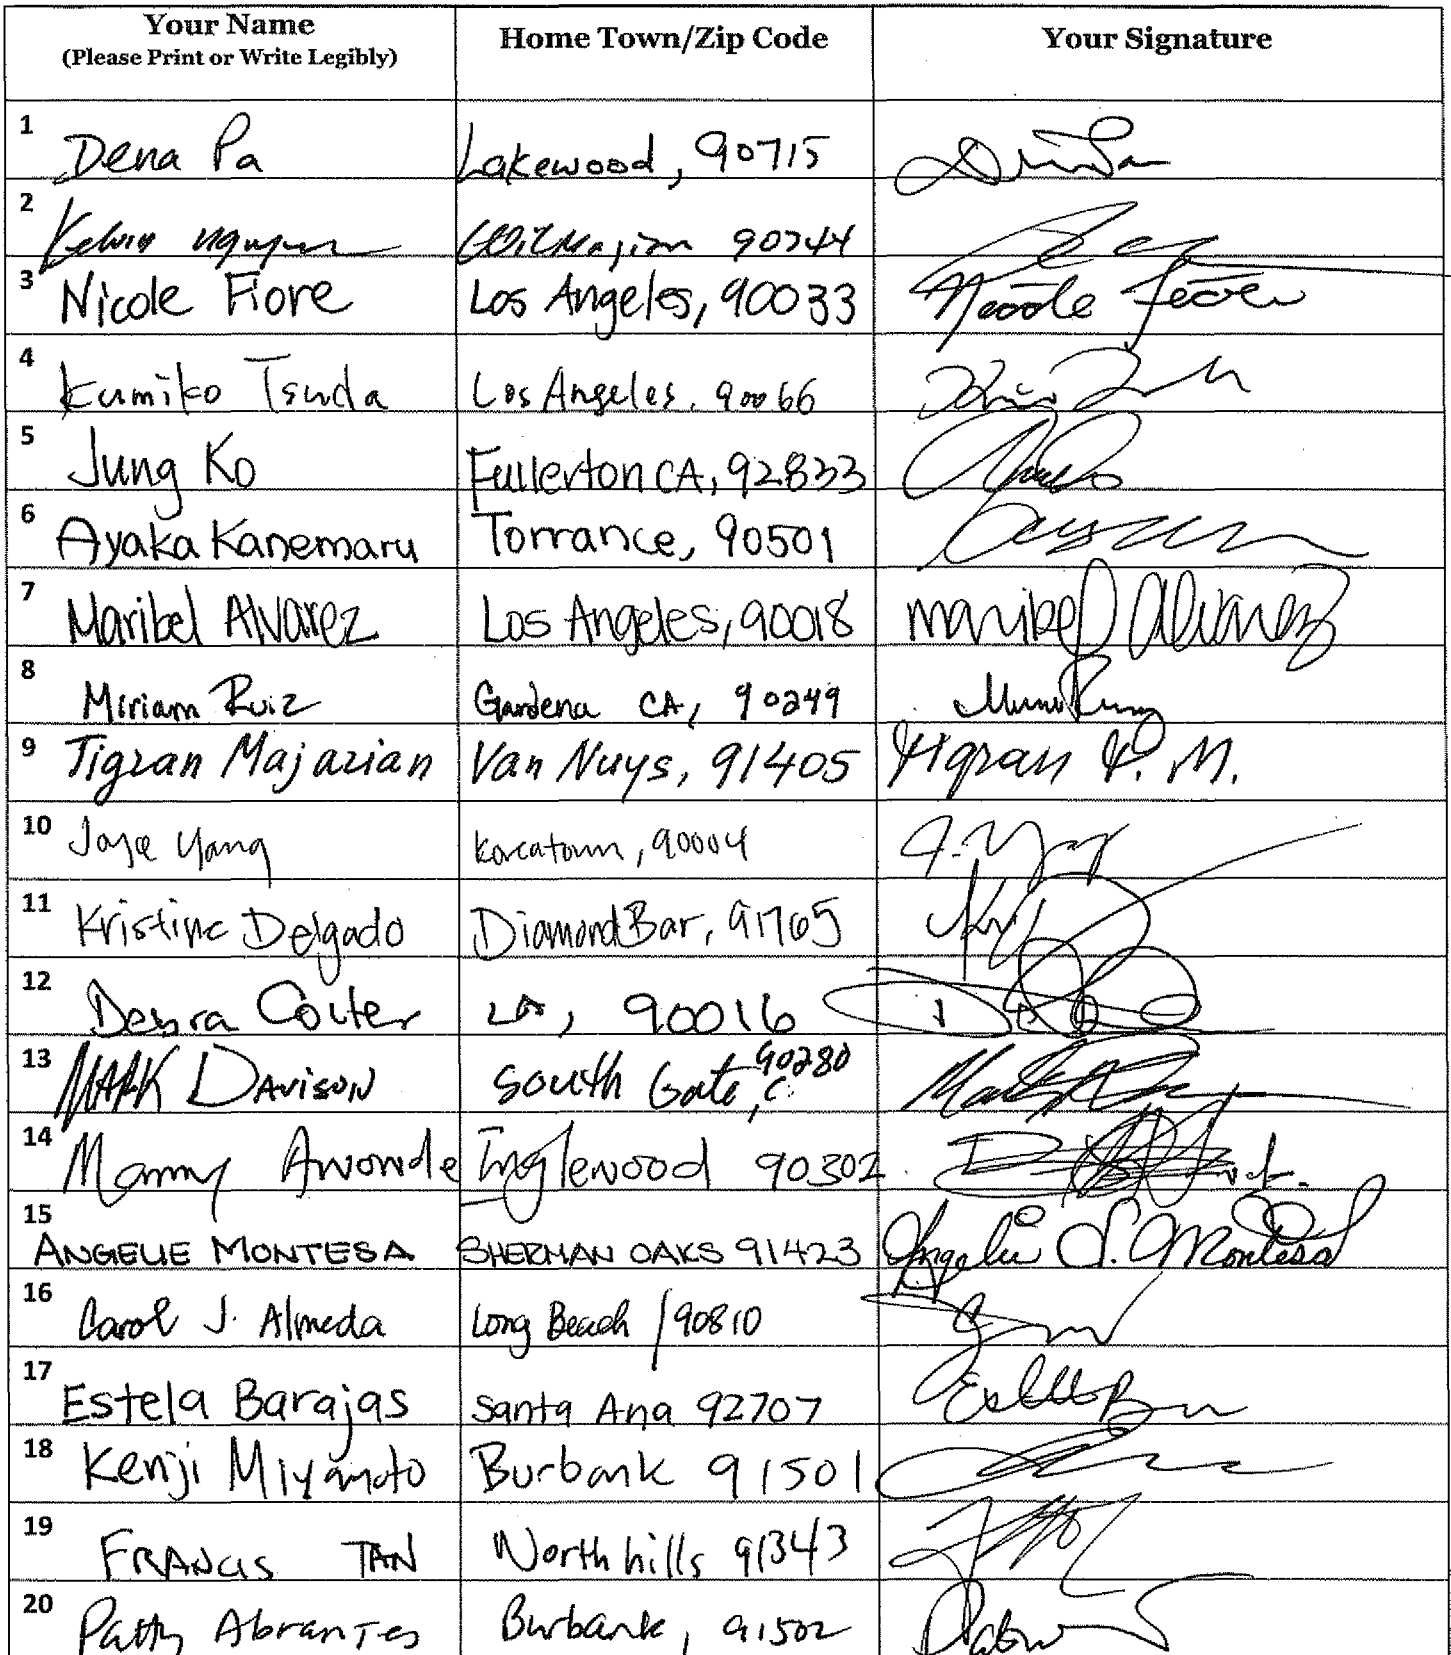 Your Name Home Town/Zip Code Your Signature
(Please Print or Write Legibly)
1 Dena Pa Lakewood, 90715
2 Kelvin Nguyen 90744
3 Nicole Fiore Los Angeles, 90033 Nicole Fiore
4 Kumiko Tsuda Los Angeles. 90066
5 Jung Ko Fullerton CA, 92833
6 Ayaka Kanemaru Torrance, 90501
7 Maribel Alvarez Los Angeles, 90018 Maribel Alvarez
8 Miriam Ruiz Gardena CA, 90249
9 Tigran Majarian Van Nuys, 91405 Tigran P. M.
10 Joyce Yang Koreatown, 90004 J. Yang
11 Kristine Delgado Diamond Bar, 91765
12 Debra Colter LA, 90016
13 MARK DAVISON South Gate, C. 90280
14 Manny Awonde Inglewood 90302
15 ANGELIE MONTESA SHERMAN OAKS 91423 Angelie S. Montesa
16 Carol J. Almeda Long Beach / 90810
17 Estela Barajas Santa Ana 92707
18 Kenji Miyamoto Burbank 91501
19 FRANCIS TAN North hills 91343
20 Patty Abrantes Burbank, 91502